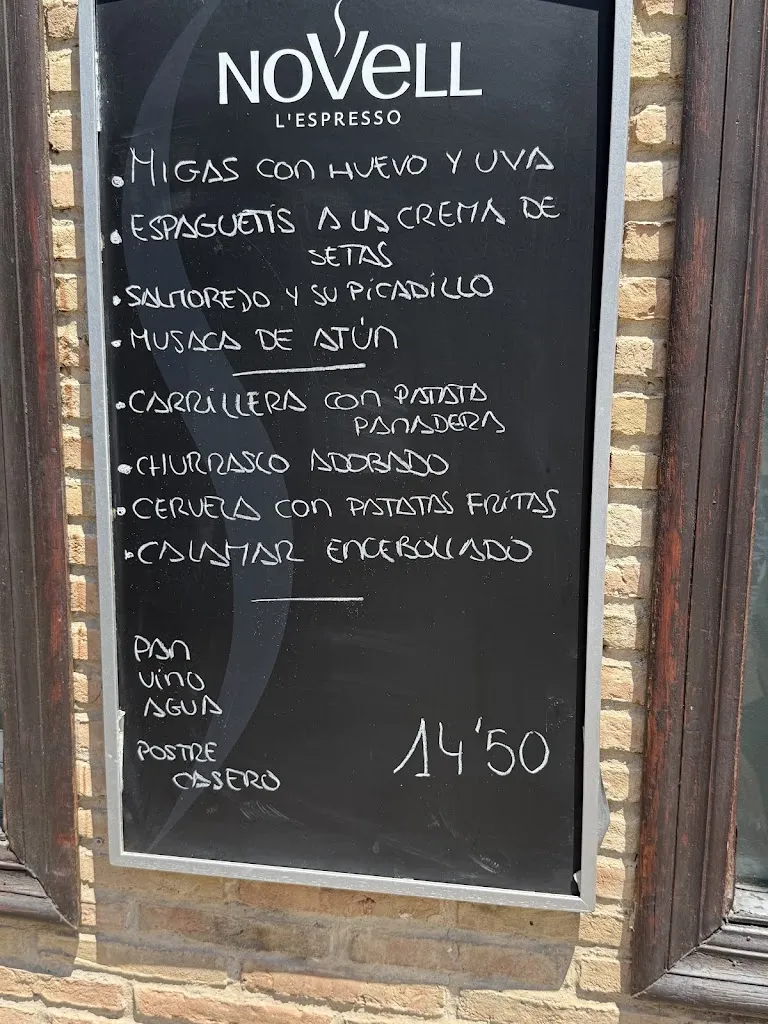 NOVELL
L'ESPRESSO
. MIGAS CON HUEVO Y UVA
. ESPAGUETIS A LA CREMA DE
SETAS
. SALMOREJO Y SU PICADILLO
. MUSACA DE ATÚN
. CARRILLERA CON PATATA
PANADERA
. CHURRASCO ADOBADO
. CERUELA CON PATATAS FRITAS
. CALAMAR ENCEBOLLADO
PAN
VINO
AGUA
POSTRE
CASERO
14'50